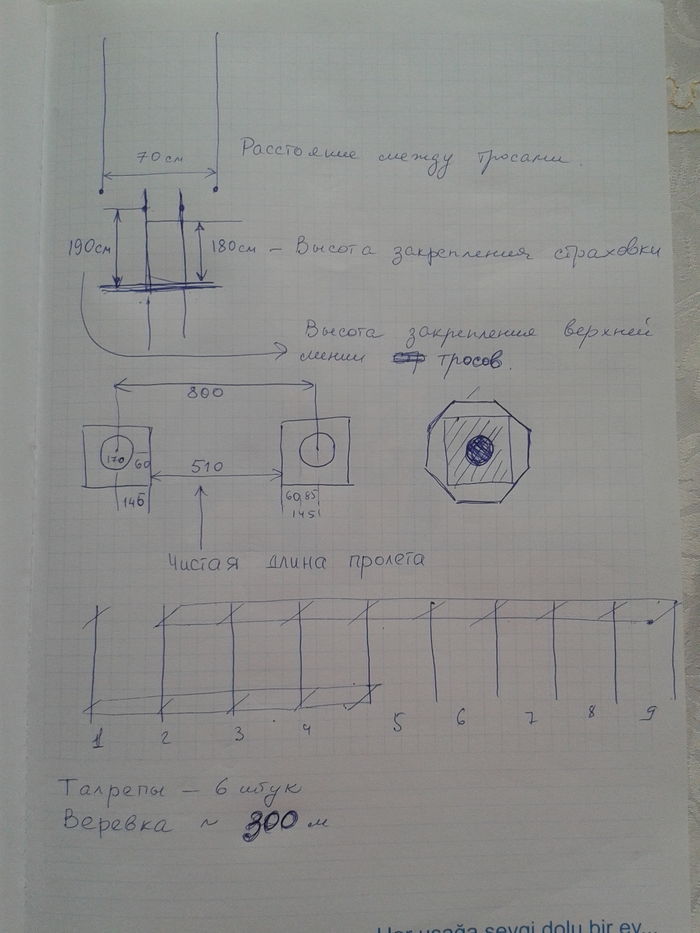 70см
Расстояние между тросами.
190см
180см – Высота закрепления страховки
Высота закрепления верхней
линии тросов.
800
170
60
510
145
60,85
145
Чистая длина пролета
1 2 3 4 5 6 7 8 9
Талрепы – 6 штук
Веревка ~ 300 м
Her uşağa sevgi dolu bir ev...